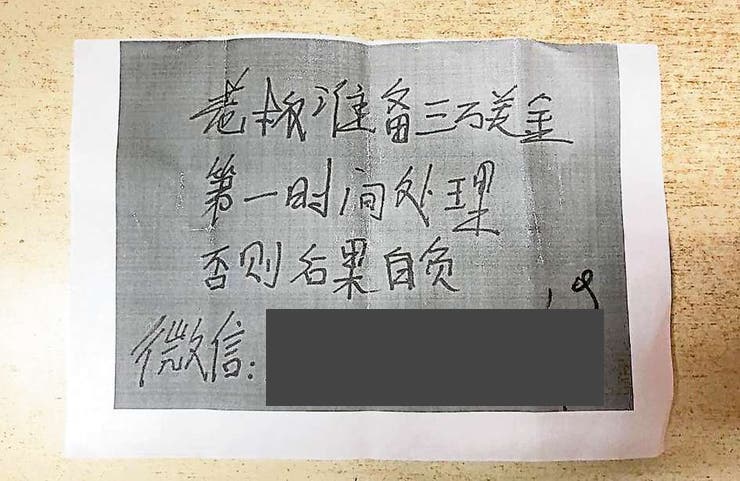 老板准备三万美金
第一时间处理
否则后果自负
微信: